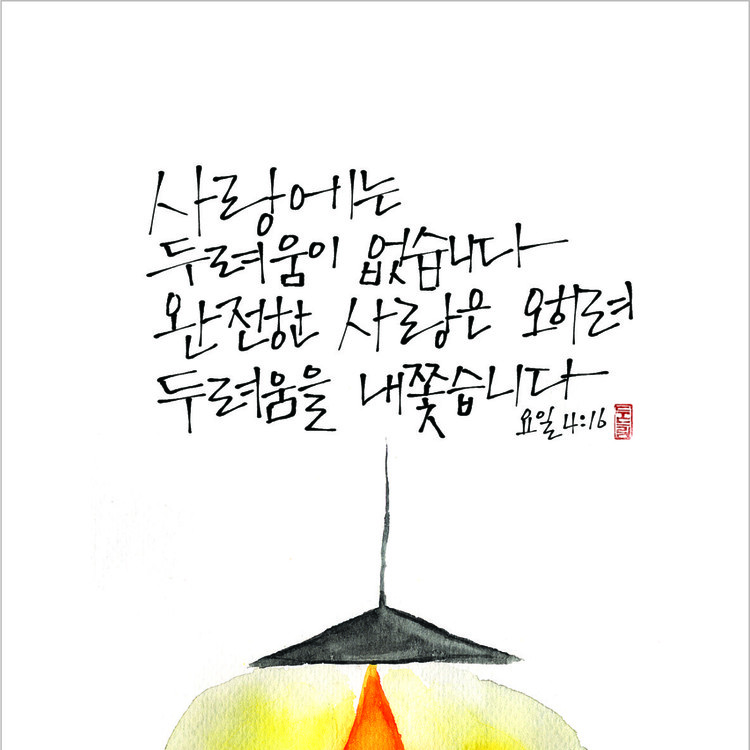 사랑에는
두려움이 없습니다
완전한 사랑은 오히려
두려움을 내쫓습니다
요일 4:16